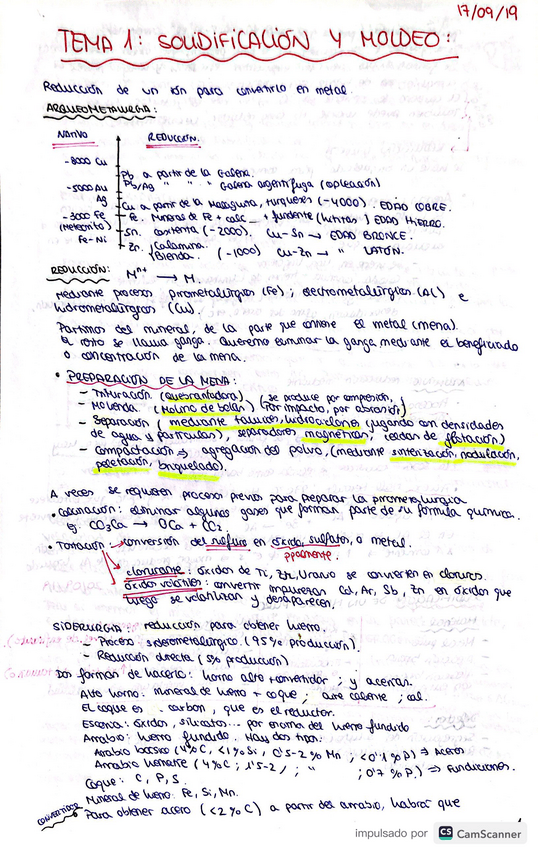 17/09/19
TEMA 1: SOLIDIFICACIÓN Y MOLDEO:
Reducción de un ión para convertirlo en metal.
ARQUEOMETALURGIA:
NATIVO REDUCCIÓN.
-8000 Cu
Pb a partir de la Galena.
-5000 Au Pb/Ag " " " Galena argentífuga (copelación)
Ag Cu a partir de la Malaquita, turquesas (-4000). EDAD COBRE.
-3000 Fe Fe. Minerales de Fe + calc + fundente ( ) EDAD HIERRO.
(Meteorito) Sn. (-2000). Cu-Sn → EDAD BRONCE.
Fe-Ni Zn. Calamina. Blenda. (-1000) Cu-Zn → " LATÓN.
REDUCCIÓN: Mⁿ⁺ → M.
Mediante procesos pirometalúrgicos (Fe); electrometalúrgicos (Al) e
hidrometalúrgicos (Cu).
Partimos del mineral, de la parte que contiene el metal (mena).
El resto se llama ganga. Queremos eliminar la ganga, mediante el beneficiado
o concentración de la mena.
• PREPARACIÓN DE LA MENA:
- Trituración (quebrantadora) (se produce por compresión,
- Molienda. (Molino de bolas) (por impacto, por abrasión)
- Separación (mediante tamices, hidrociclones (jugando con densidades
de agua y partículas), separadores magnéticos, celdas de flotación)
- Compactación → agregación del polvo, (mediante sinterización, nodulación,
peletación, briquelado).
A veces se requieren procesos previos para preparar la pirometalurgia
• Calcinación: eliminar algunos gases que forman parte de su fórmula química.
eg. CO₃Ca → OCa + CO₂
• Tostación: conversión del sulfuro en óxido, sulfatos, o metal.
ppalmente.
clorurante: óxidos de Ti, Zr, Uranio se convierten en cloruros.
óxidos volátiles: convertir impurezas Cd, Ar, Sb, Zn en óxidos que
luego se volatilizan y desaparecen.
SIDERURGIA: reducción para obtener hierro.
- Proceso siderometalúrgico. (95% producción).
- Reducción directa (5% producción)
Dos formas de hacerlo: horno alto + convertidor; y acerías.
Alto horno: mineral de hierro + coque; aire caliente; cal.
El coque es carbon, que es el reductor.
Escoria: óxidos, silicatos... por encima del hierro fundido
Arrabio: hierro fundido. Hay dos tipos:
Arrabio básico (4%C, <1%Si, 0'5-2%Mn, <0'1%P) ⇒ Aceros
Arrabio hematite (4%C; 1'5-2/; " ; 0'7%P.) ⇒ Fundiciones.
Coque: C, P, S.
Mineral de hierro: Fe, Si, Mn.
CONVERTIDOR
• Para obtener acero (<2%C) a partir del arrabio, habrá que
impulsado por CS CamScanner